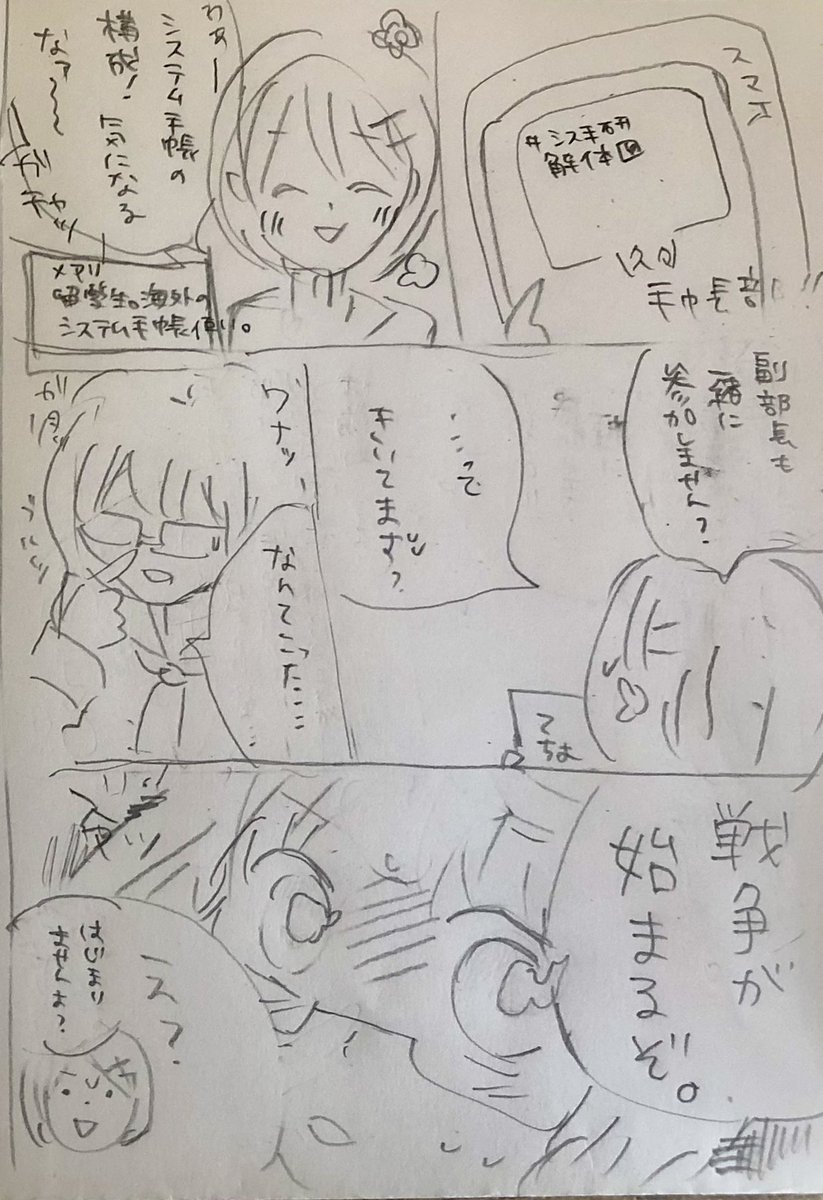 スマホ
#シス手研
解体図
IN
手帳部!!
わぁー
システム手帳の
構成!気になる
なァ〜〜
ガチャッ
メアリ
留学生。海外の
システム手帳使い。
副部長も
一緒に
参加しません?
てちょ
…って
きいてます?
ワナッ
なんてこった……
ガタ
ブルッ
戦争が
始まるぞ。
え?
はじまり
ませんよ?